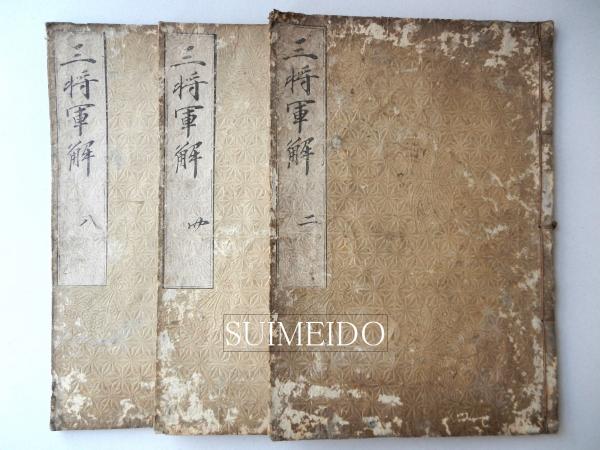 三将軍解
二
三将軍解
卌
三将軍解
八
SUIMEIDO